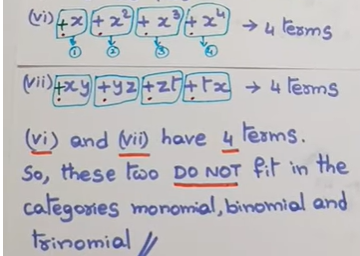 (vi) +x +x² +x³ +x⁴ → 4 terms
① ② ③ ④
(vii) +xy +yz +zt +tx → 4 terms
(vi) and (vii) have 4 terms.
So, these two DO NOT fit in the
categories monomial, binomial and
trinomial //